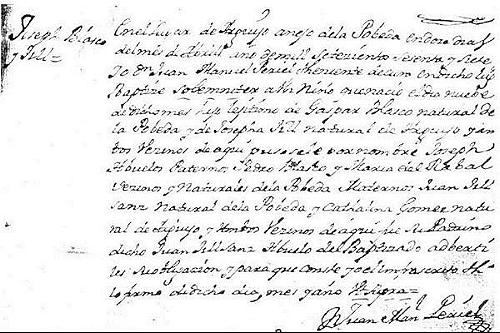 Joseph Blasco
y Sill=
En el Lugar de Arguiso anejo de la Pobeda en doze dias
del mes de Abril año de mil setecientos sesenta y siete
Yo Dn Juan Manuel theniente de cura en dicho lug
Baptize solemniter a un Niño que nacio el dia nuebe
de dicho mes hijo legitimo de Gaspar Blasco natural de
la Pobeda y de Josepha Sill natural de Arguiso y am
bos Vezinos de aqui pusosele por nombre Joseph
Abuelos Paternos Pedro Blasco y Maria del Rabal
Vezinos y Naturales de la Pobeda Maternos Juan Sill
sanz Natural de la Pobeda y Cathalina Gomez natu
ral de Arguiso y Ambos Vezinos de aqui fue su Padrino
dicho Juan Sillsanz Abuelo del Baptizado adberti
les su obligacion y para que conste yo el infrascrito
lo firmo de dicho dia, mes y año Vt supra=
Dn Juan Man